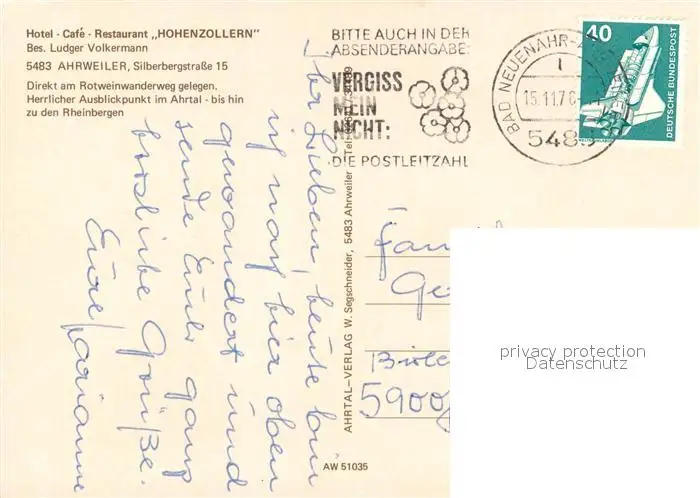 Hotel - Café - Restaurant „HOHENZOLLERN"
Bes. Ludger Volkermann
5483 AHRWEILER, Silberbergstraße 15
Direkt am Rotweinwanderweg gelegen.
Herrlicher Ausblickpunkt im Ahrtal - bis hin
zu den Rheinbergen
BITTE AUCH IN DER
ABSENDERANGABE:
VERGISS
MEIN
NICHT:
DIE POSTLEITZAHL
BAD NEUENAHR-A
1
15.11.7
548
40
DEUTSCHE BUNDESPOST
Ihr Lieben, heute bin
ich mal hier oben
gewandert und
sende Euch ganz
herzliche Grüße.
Eure Marianne
AHRTAL-VERLAG W. Segschneider, 5483 Ahrweiler
Fam
5900
AW 51035
privacy protection
Datenschutz